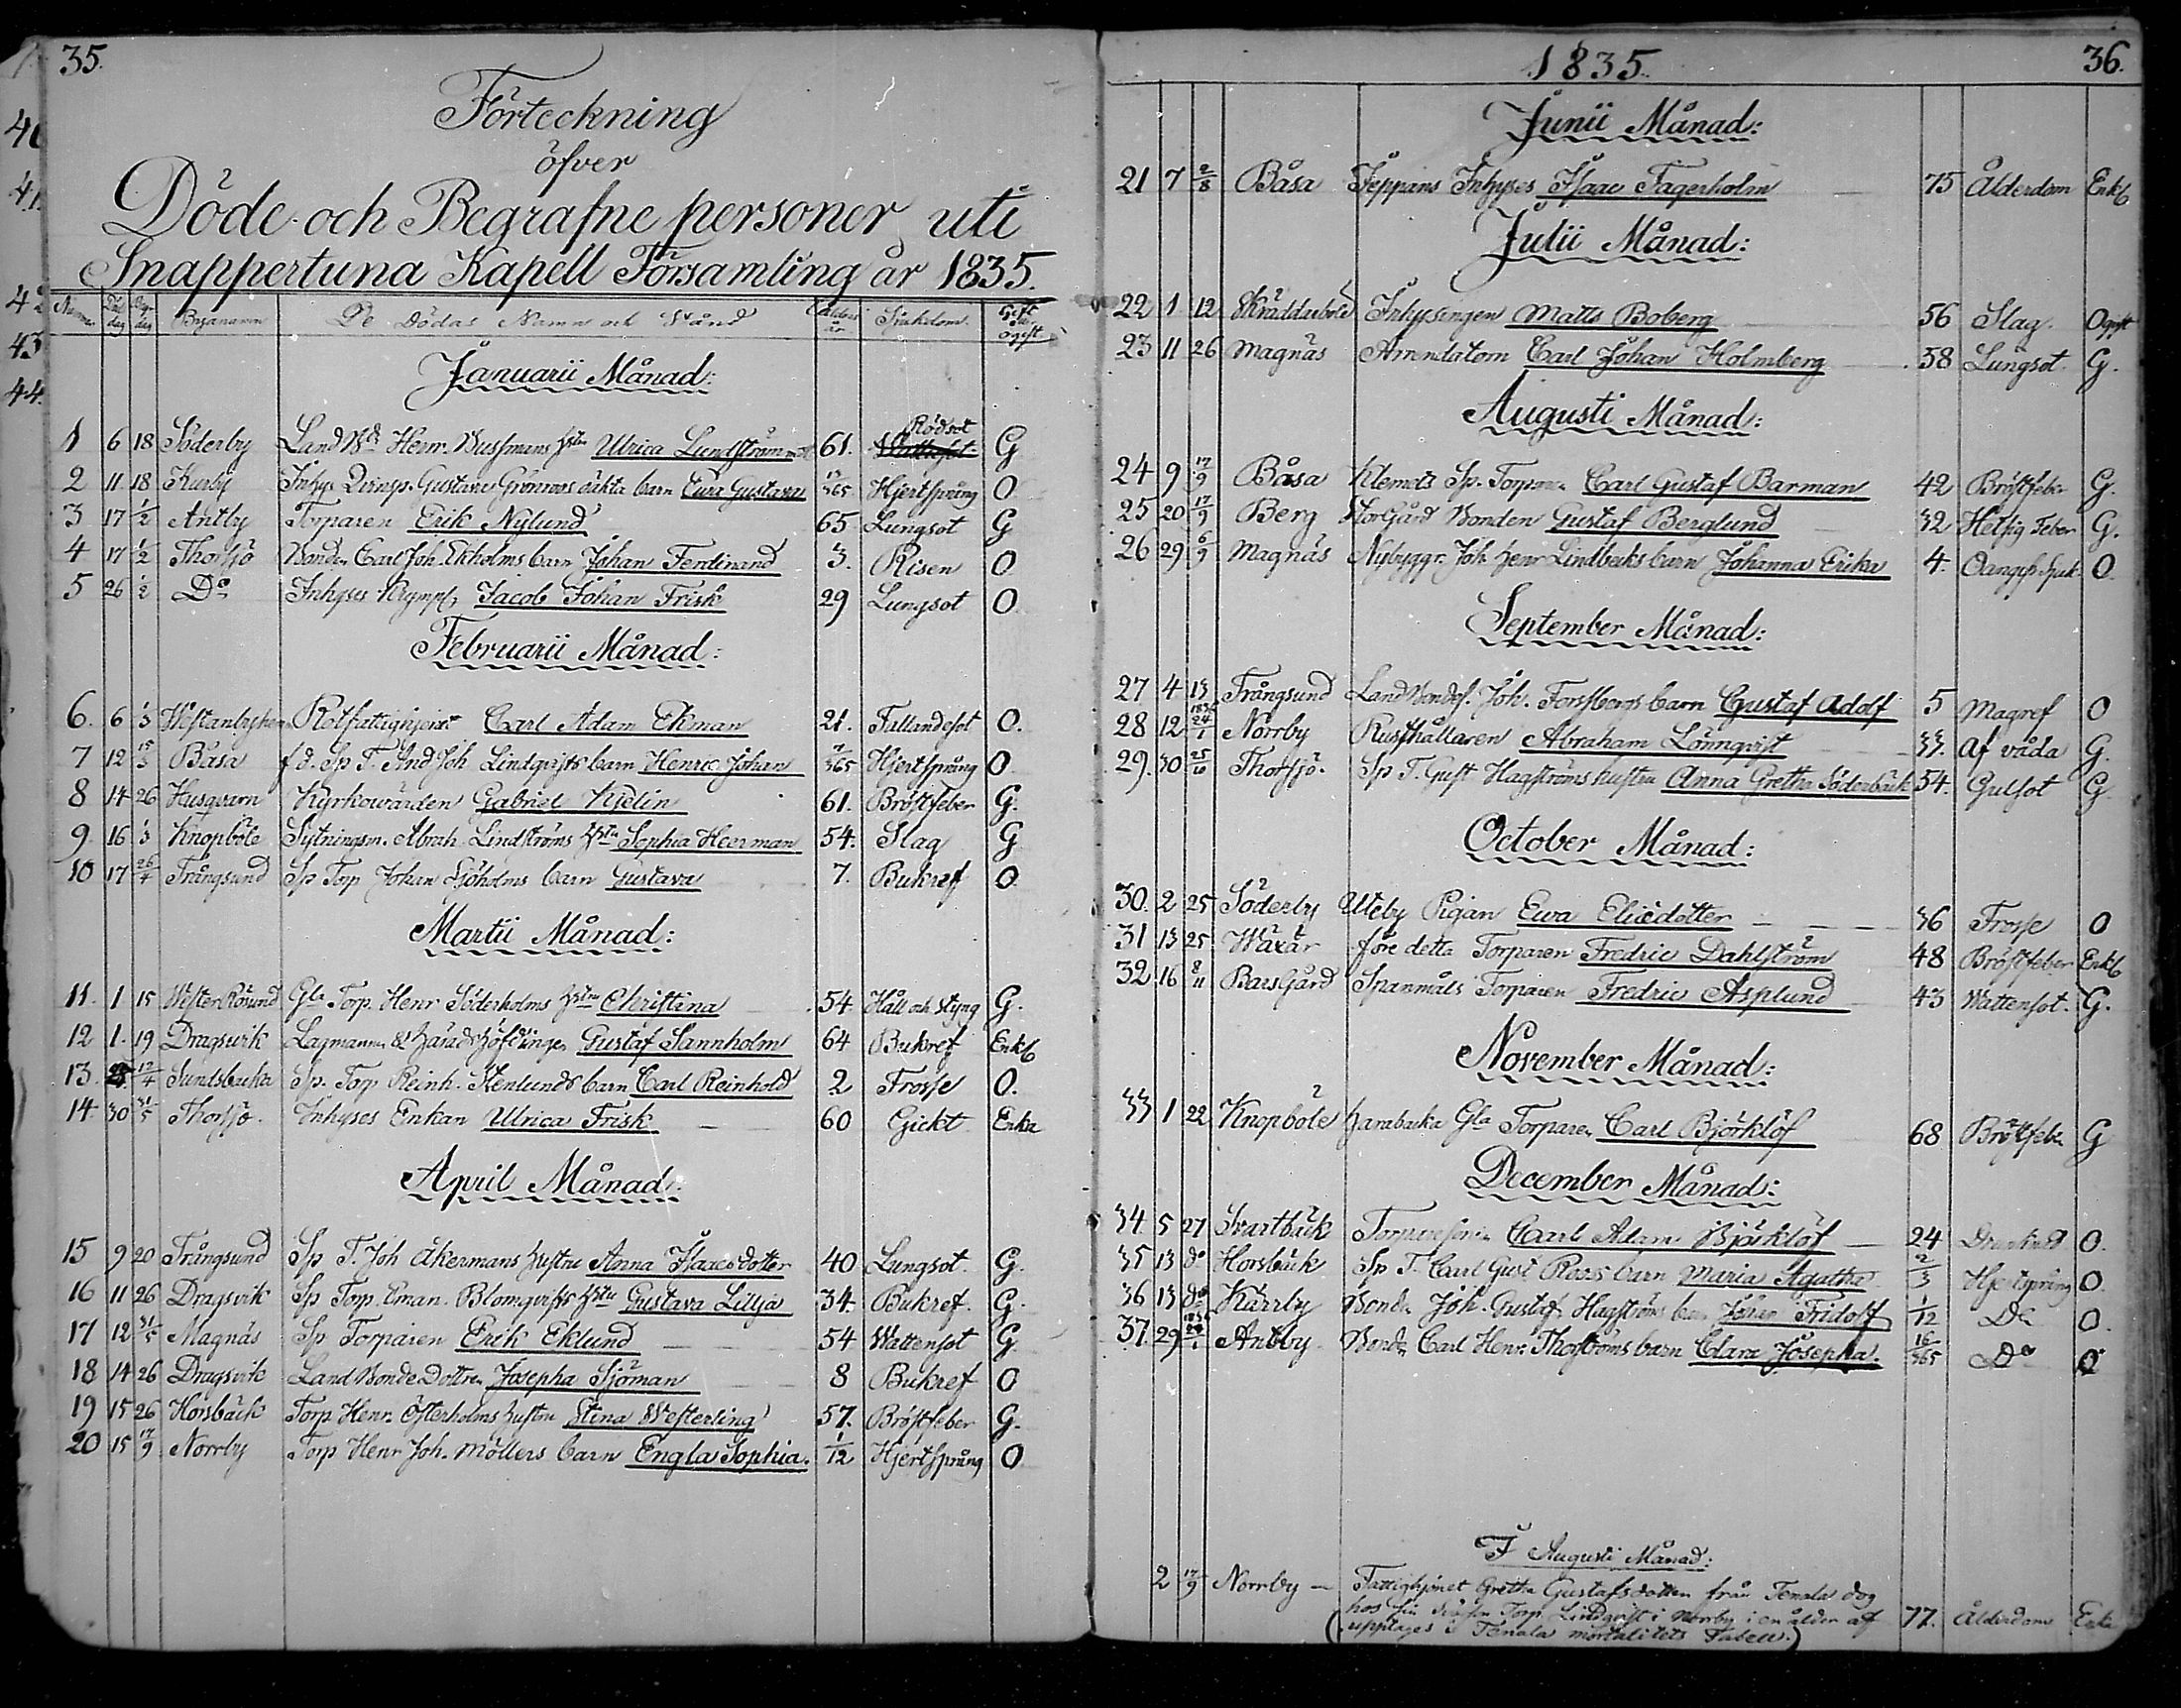 35.
Förteckning
öfver
Döde och Begrafne personer uti
Snappertuna Kapell Församling år 1835.
Död dag Begr. dag Byanamn De Dödas Namn och Stånd Ålders år Sjukdom Gift ogift
Januarii Månad:
1 6 18 Söderby Land Bd Henr. Bussmans hstru Ulrica Lundström 61. Rödsot G
2 11 18 Kurby Inhys Qvinsp. Gustava Grönroos oäkta barn Eva Gustava 12/365 Hjertsprång O
3 17 1/2 Antby Torparen Erik Nylund 65 Lungsot G
4 17 1/2 Thorsjö Bonden Carl Joh. Ekholms barn Johan Ferdinand 3. Risen O
5 26 1/2 Do Inhyses Krympl. Jacob Johan Frisk 29 Lungsot O
Februarii Månad:
6. 6 1/3 Westanby Rotfattighjonet Carl Adam Ekman 21. Fallandesot O.
7 12 15/3 Båsa f d. Sp T. And Joh Lindqvists barn Henric Johan 7/365 Hjertsprång O
8 14 26 Husqvarn Kyrkowärden Gabriel Kjelin 61. Bröstfeber G.
9. 16 1/3 Knopböle Sytningsm. Abrah. Lindströms hstru Sophia Heerman 54. Slag G
10 17 26/4 Trångsund Sp Torp Johan Sjöholms barn Gustava 7. Bukref O
Martii Månad:
11. 1 15 WesterRösund Gla Torp. Henr Söderholms hstru Christina 54. Håll och styng G.
12 1. 19 Dragsvik Lagmannen & Häradshöfdingen Gustaf Sannholm 64 Bukref Enkl
13. 25 12/4 Sundsbacka Sp. Torp Reinh. Stenlunds barn Carl Reinhold 2 Frosse O.
14. 30 31/5 Thorsjö. Inhyses Enkan Ulrica Frisk 60 Gickt Enka
April Månad:
15 9 20 Trångsund Sp T. Joh Åkermans hustru Anna Isaacsdotter 40 Lungsot. G.
16 11 26 Dragsvik Sp Torp. Eman. Blomqvists hstru Gustava Lillja 34. Bukref. G.
17 12 31/5 Magnäs Sp Torparen Erik Eklund 54 Wattensot G
18 14 26 Dragsvik Land Bonde Dottren Josepha Sjöman 8 Bukref O
19 15 26 Horsbäck Torp Henr. Österholms hustru Stina Westerling 57. Bröstfeber G.
20 15 17/9 Norrby Torp Henr Joh. Möllers barn Engla Sophia. 1/12 Hjertsprång O
1835. 36.
Junii Månad:
21 7 2/8 Båsa Jeppans Inhyses Isaac Fagerholm 75 Ålderdom Enkl
Julii Månad:
22 1 12 Skräddarböle Inhysingen Matts Boberg 56 Slag. Ogift
23 11 26 Magnäs Arrendatorn Carl Johan Holmberg 38 Lungsot. G.
Augusti Månad:
24 9 17/9 Båsa Klemets Sp. Torparen Carl Gustaf Barman 42 Bröstfeber G.
25 20 17/9 Berg StorGård Bonden Gustaf Berglund 32 Hetsig Feber G.
26 29 6/9 Magnäs Nybyggr. Joh. Henr Lindbecks barn Johanna Erika 4. Oangifv. Sjuk O.
September Månad:
27 4 13 Trångsund Land Bondes. Joh. Forsbergs barn Gustaf Adolf 5 Magref O
28 12 1836 24/1 Norrby Rusthållaren Abraham Lönnqvist 33. Af våda G.
29. 30 25/10 Thorsjö. Sp T. Gust Hagströms hustru Anna Gretha Söderbäck 54. Gulsot G
October Månad:
30. 2 25 Söderby Uteby Pigan Ewa Eliædotter 36 Frosse O
31 13 25 Wäxär före detta Torparen Fredric Dahlström 48 Bröstfeber Enkl
32. 16 8/11 BarsGård Spanmåls Torparen Fredric Asplund 43 Wattensot. G.
November Månad:
33 1 22 Knopböle Harabacka Gla Torparen Carl Björklöf 68 Bröstfeber G
December Månad:
34. 5 27 Svartbäck Torparesonen Carl Adam Björklöf 24 O.
35 13 do Horsbäck Sp T. Carl Gust Roos barn Maria Agatha 2/3 Hjertsprång O
36 13 do Kärrby Bonden Joh. Gustaf Hagströms barn Johan Fridolf 1/12 Do O.
37. 29 1836 Antby Bonden Carl Henr. Thorströms barn Clara Josepha. 16/365 Do O
I Augusti Månad:
2 17/9 Norrby – Fattighjonet Gretha Gustafsdotter från Tenala dog
hos sin Torp. Lindqvist i Norrby i en ålder af 77. Ålderdom Enka
(upptages i Tenala mortalitets Tabell.)